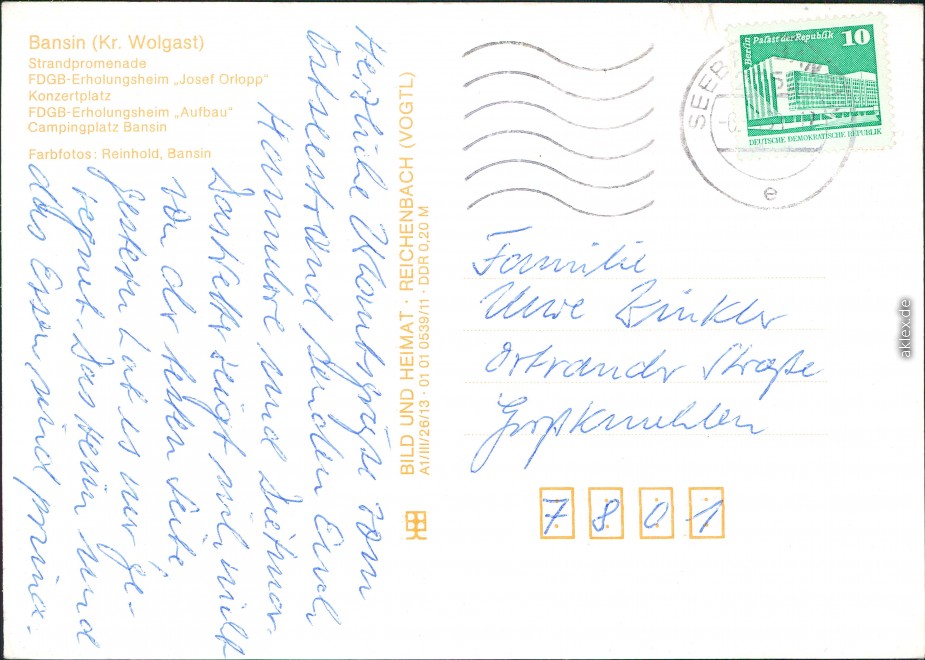 Bansin (Kr. Wolgast)
Strandpromenade
FDGB-Erholungsheim „Josef Orlopp"
Konzertplatz
FDGB-Erholungsheim „Aufbau"
Campingplatz Bansin
Farbfotos: Reinhold, Bansin
Herzliche Urlaubsgrüße vom
Ostseestrand senden Euch
Hannelore und Dietmar.
Das Wetter zeigt sich nicht
von der besten Seite,
gestern hat es nur ge-
regnet. Das Heim und
das Essen sind prima.
BILD UND HEIMAT · REICHENBACH (VOGTL)
A1/III/26/13 · 01 01 0539/11 · DDR 0,20 M
Berlin Palast der Republik 10
DEUTSCHE DEMOKRATISCHE REPUBLIK
SEEB
e
Familie
Uwe Winkler
Ortrander Straße
Großkmehlen
7801
aklex.de